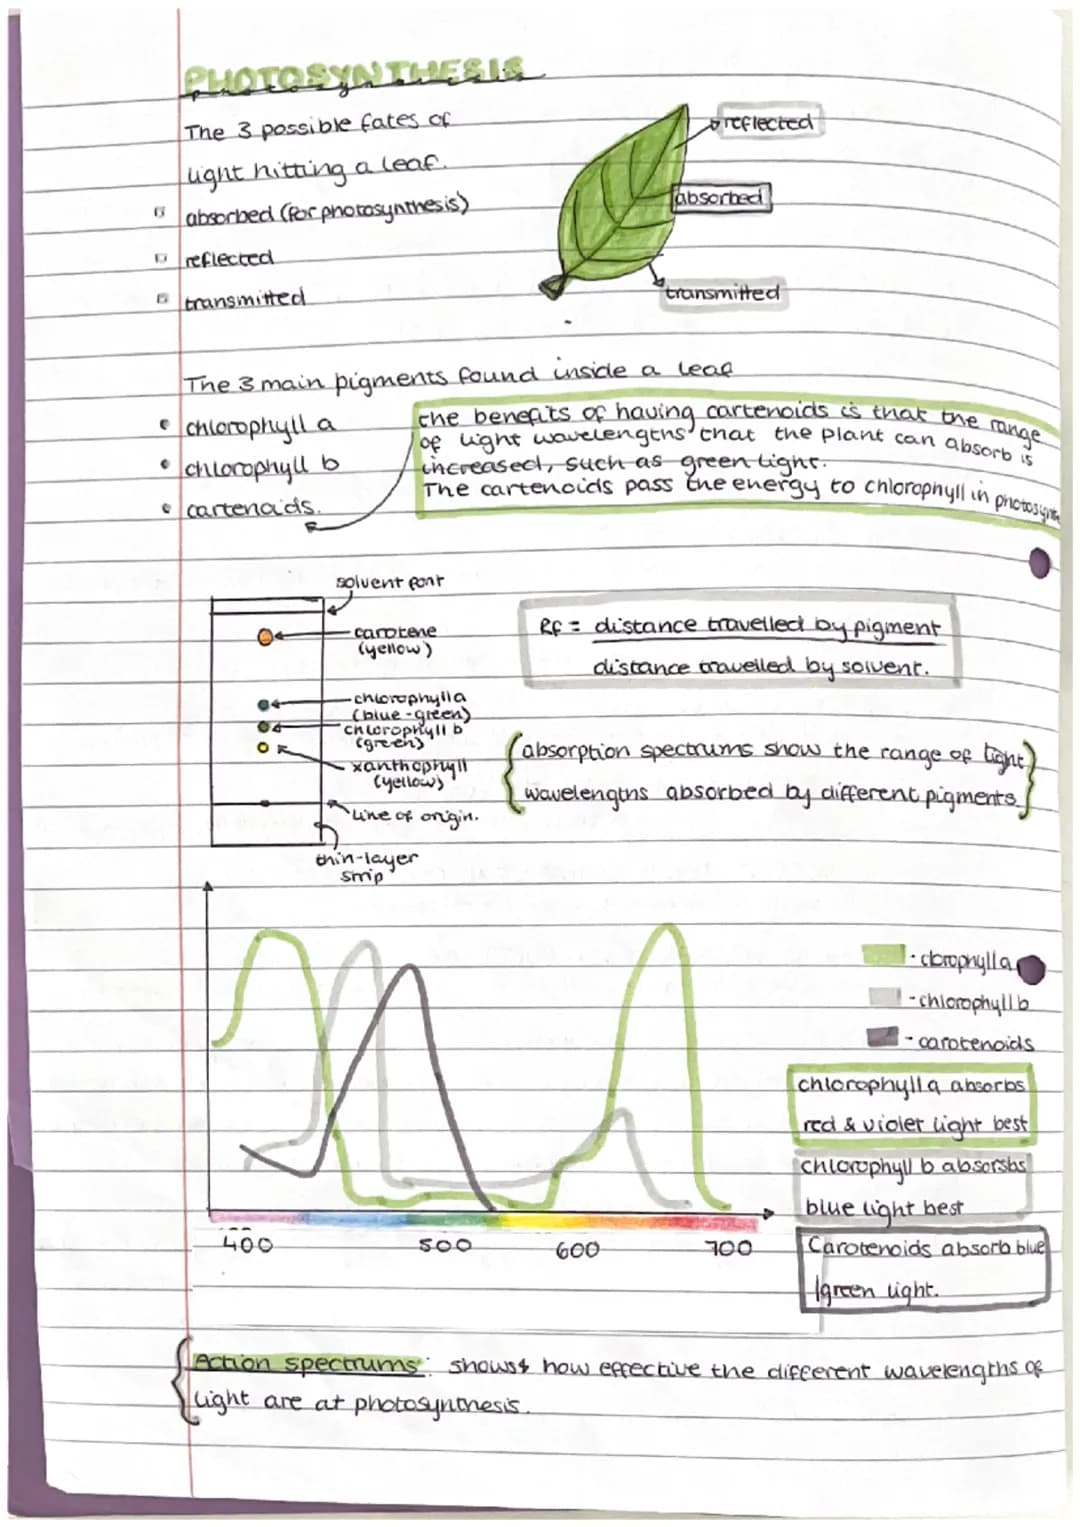 PHOTOSYNTHESIS
The 3 possible fates of
light hitting a leaf.
absorbed (for photosynthesis)
reflected
transmitted
reflected
absorbed
transmitted
The 3 main pigments found inside a leaf
chlorophyll a
chlorophyll b
cartenoids.
the benefits of having cartenoids is that the range
of light wavelengths that the plant can absorb is
increased, such as green light.
The cartenoids pass the energy to chlorophyll in
solvent font
carotene
(yellow)
chlorophyll a
(blue-green)
chlorophyll b
(green)
xanthophyll
(yellow)
Line of origin.
thin-layer
strip
Rf = distance travelled by pigment
distance travelled by solvent.
absorption spectrums show the range of light
wavelengths absorbed by different pigments.
- clorophyll a
- chlorophyll b
- carotenoids
chlorophyll a absorbs
red & violet light best
chlorophyll b absorsbs
blue light best
Carotenoids absorb blue
/green light.
400 500 600 700
Action spectrums: shows how effective the different wavelengths of
light are at photosynthesis.